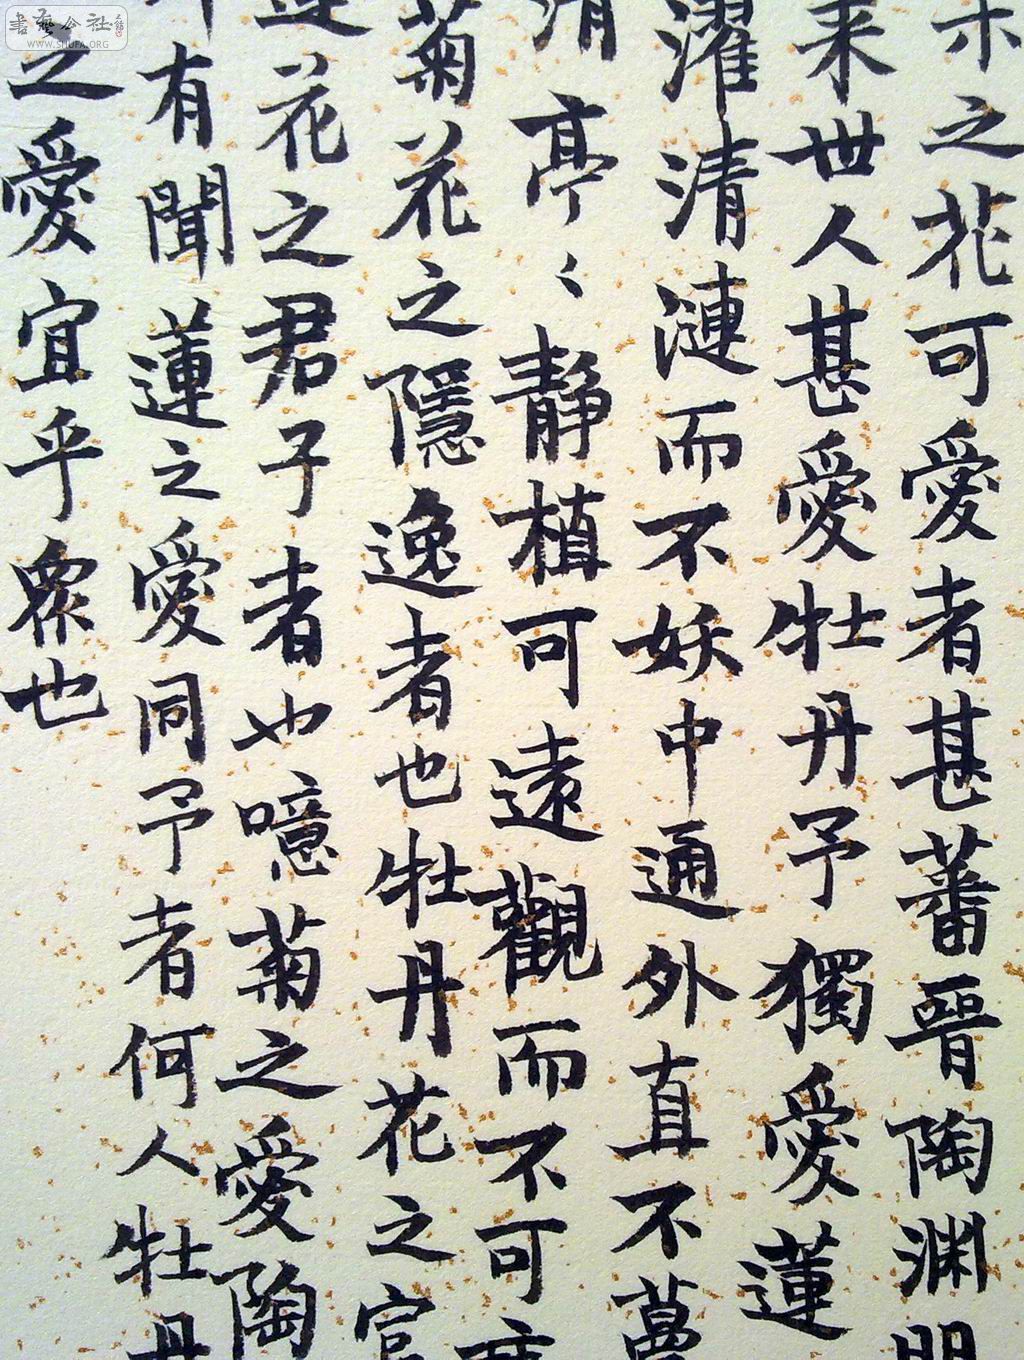 木之花可愛者甚蕃晉陶渊明
来世人甚愛牡丹予獨愛蓮
濯清漣而不妖中通外直不蔓
清亭〻静植可遠觀而不可
菊花之隱逸者也牡丹花之富
蓮花之君子者也噫菊之愛陶
有聞蓮之愛同予者何人牡丹
之愛宜乎衆也
書藝公社
WWW.SHUFA.ORG